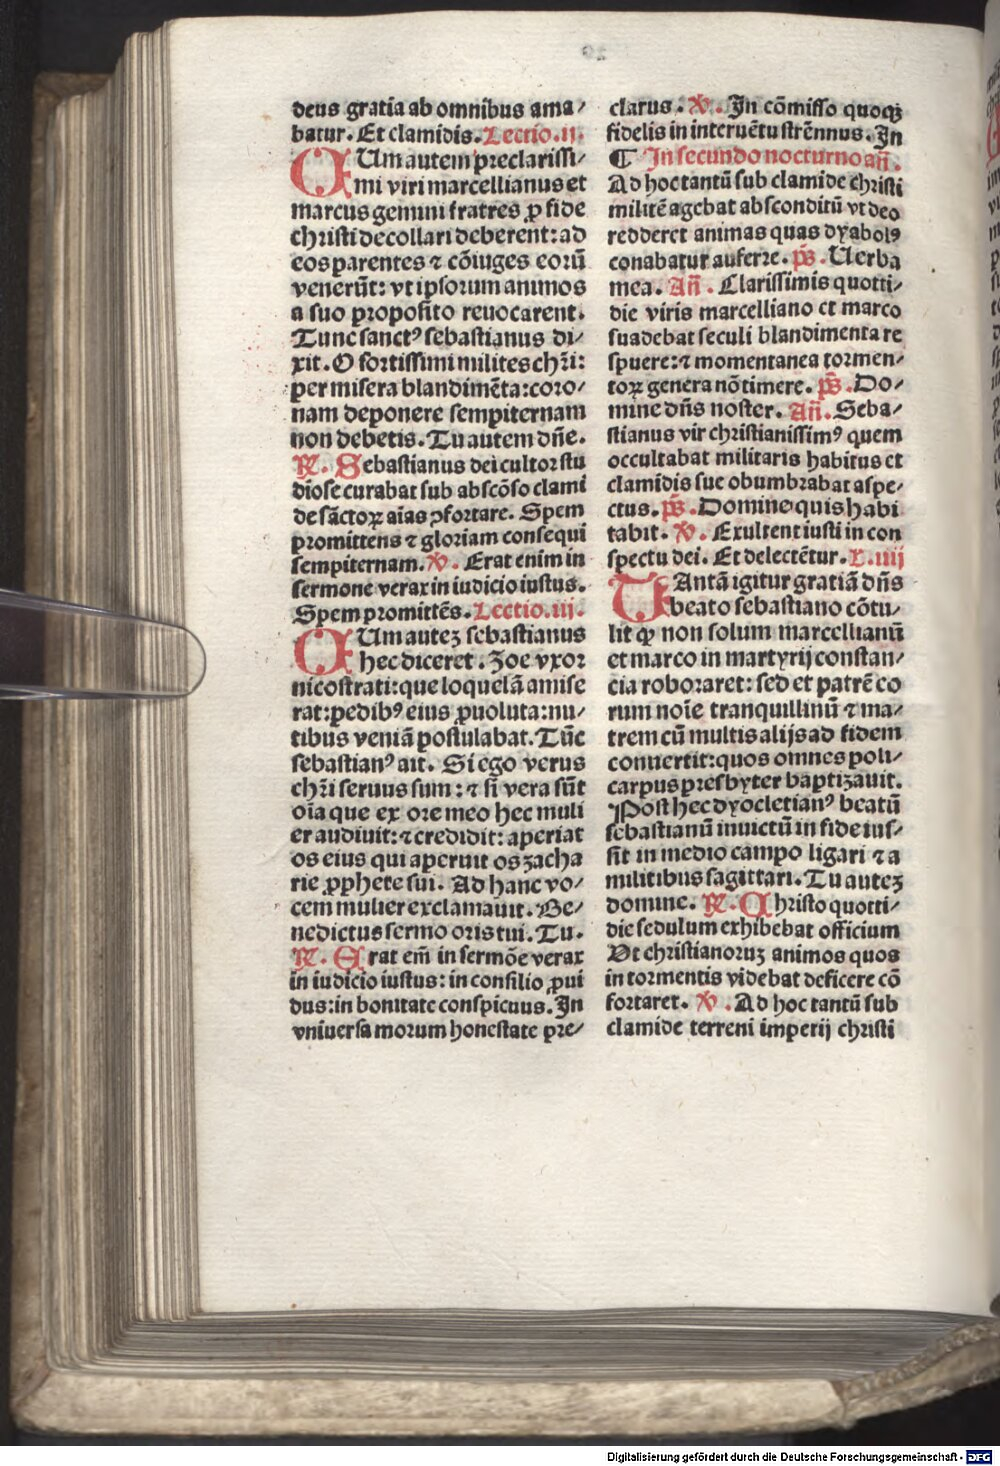 deus gratia ab omnibus ama⸗
batur. Et clamidis. Lectio.ii.
CUm autem preclarissi⸗
mi viri marcellianus et
marcus gemini fratres ꝓ fide
christi decollari deberent: ad
eos parentes ⁊ cōiuges eorū
venerūt: vt ipsorum animos
a suo proposito reuocarent.
Tunc sanctꝰ sebastianus di⸗
xit. O fortissimi milites chr̄i:
per misera blandimēta: coro⸗
nam deponere sempiternam
non debetis. Tu autem dn̄e.
℟. Sebastianus dei cultor stu
diose curabat sub abscōso clami
de sāctoꝝ aīas ꝯfortare. Spem
promittens ⁊ gloriam consequi
sempiternam. ℣. Erat enim in
sermone verax in iudicio iustus.
Spem promittēs. Lectio.iij.
CUm autez sebastianus
hec diceret. Zoe vxor
nicostrati: que loquelā amise
rat: pedibꝰ eius ꝓuoluta: nu⸗
tibus veniā postulabat. Tūc
sebastianꝰ ait. Si ego verus
chr̄i seruus sum: ⁊ si vera sūt
oīa que ex ore meo hec muli
er audiuit: ⁊ credidit: aperiat
os eius qui aperuit os zacha
rie ꝓphete sui. Ad hanc vo⸗
cem mulier exclamauit. Be⸗
nedictus sermo oris tui. Tu.
℟. Erat em̄ in sermōe verax
in iudicio iustus: in consilio ꝓui
dus: in bonitate conspicuus. In
vniuersa morum honestate pre⸗
clarus. ℣. In cōmisso quoqꝫ
fidelis in interuētu strēnnus. In
¶ In secundo nocturno an̄.
Ad hoc tantū sub clamide christi
militē agebat absconditū vt deo
redderet animas quas dyabolꝰ
conabatur auferre. ps̄. Uerba
mea. An̄. Clarissimis quotti⸗
die viris marcelliano et marco
suadebat seculi blandimenta re
spuere: ⁊ momentanea tormen⸗
toꝝ genera nō timere. ps̄. Do⸗
mine dn̄s noster. An̄. Seba⸗
stianus vir christianissimꝰ quem
occultabat militaris habitus et
clamidis sue obumbrabat aspe⸗
ctus. ps̄. Domine quis habi
tabit. ℣. Exultent iusti in con
spectu dei. Et delectētur. L.iiij
TAntā igitur gratiā dn̄s
beato sebastiano cōtu⸗
lit ꝙ non solum marcellianū
et marco in martyrij constan⸗
cia roboraret: sed et patrē co
rum noīe tranquillinū ⁊ ma⸗
trem cū multis alijs ad fidem
conuertit: quos omnes poli⸗
carpus presbyter baptizauit.
Post hec dyocletianꝰ beatū
sebastianū inuictū in fide ius⸗
sit in medio campo ligari ⁊ a
militibus sagittari. Tu autez
domine. ℟. Christo quotti⸗
die sedulum exhibebat officium
Ut christianoruz animos quos
in tormentis videbat deficere cō
fortaret. ℣. Ad hoc tantū sub
clamide terreni imperij christi
Digitalisierung gefördert durch die Deutsche Forschungsgemeinschaft - DFG